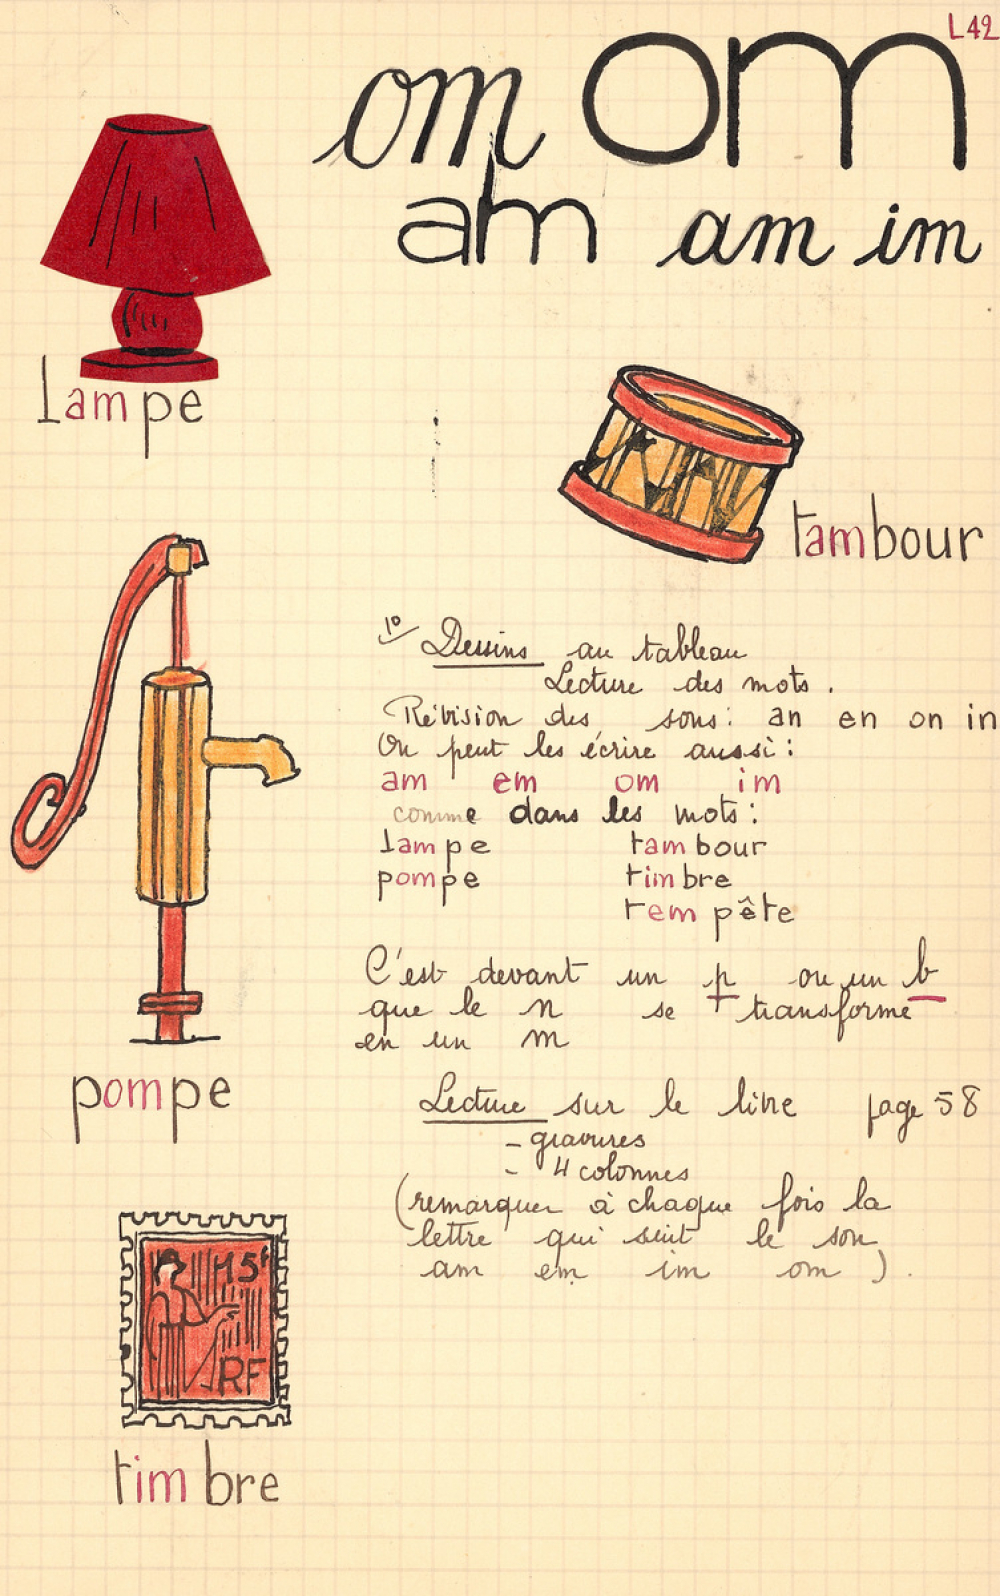 L42
om om
am am im
lampe
tambour
1º Dessins au tableau
Lecture des mots.
Révision des sons: an en on in
On peut les écrire aussi:
am em om im
comme dans les mots:
lampe tambour
pompe timbre
tempête
C'est devant un p ou un b
que le n se transforme
en un m
pompe
Lecture sur le livre page 58
- gravures
- 4 colonnes
(remarquer à chaque fois la
lettre qui suit le son
am em im om).
15f
RF
timbre